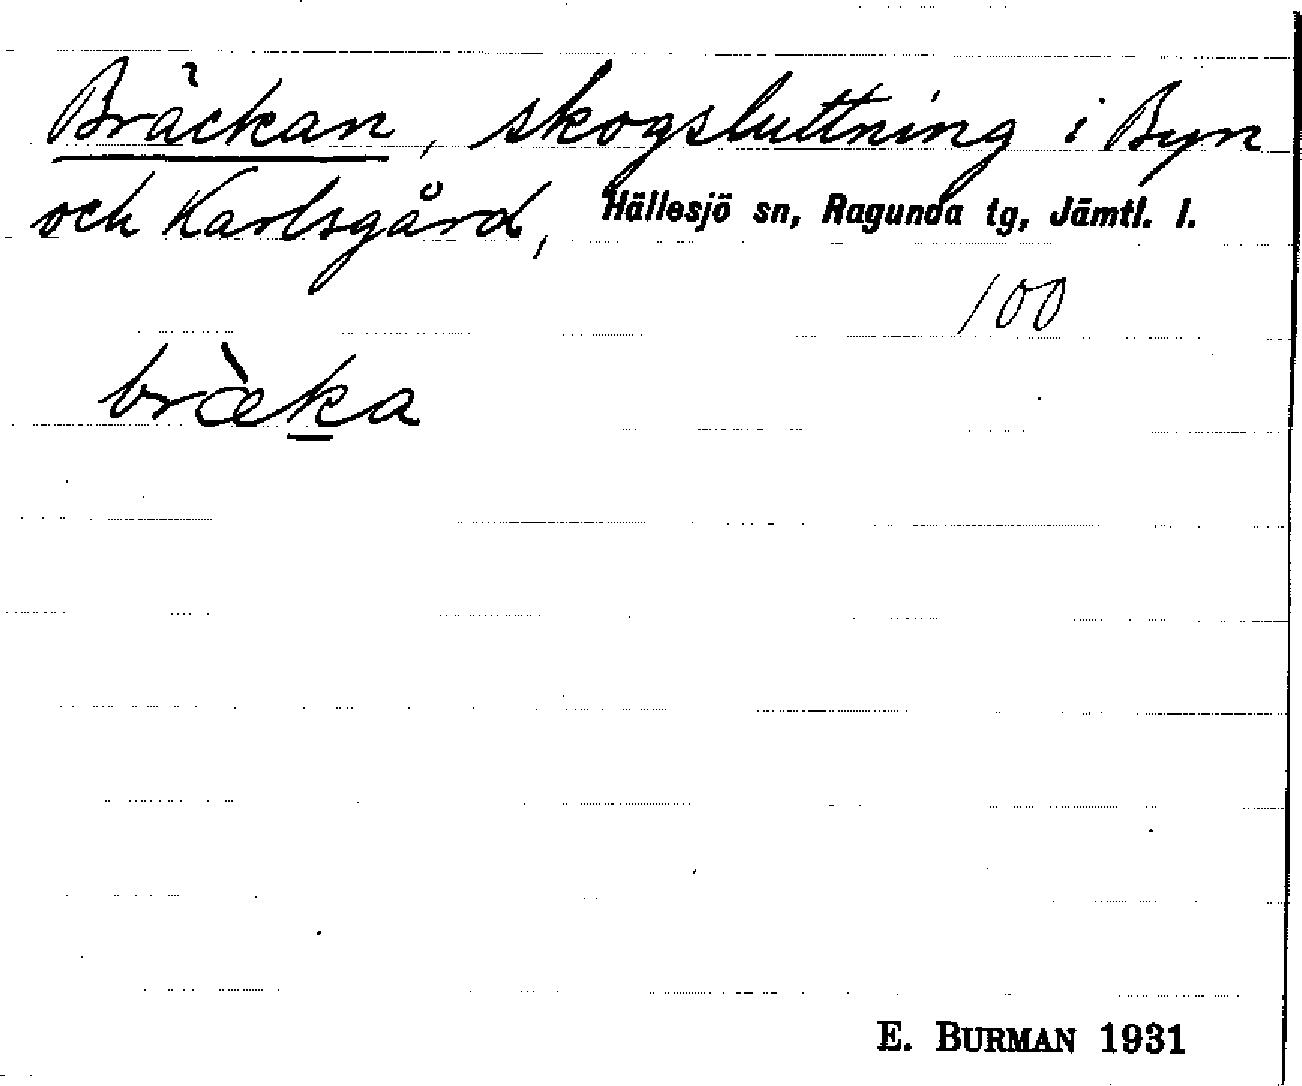 Bräckan, skogsluttning i Byn
och Karlsgård, Hällesjö sn, Ragunda tg, Jämtl. l.
100
bræ̀ka
E. BURMAN 1931